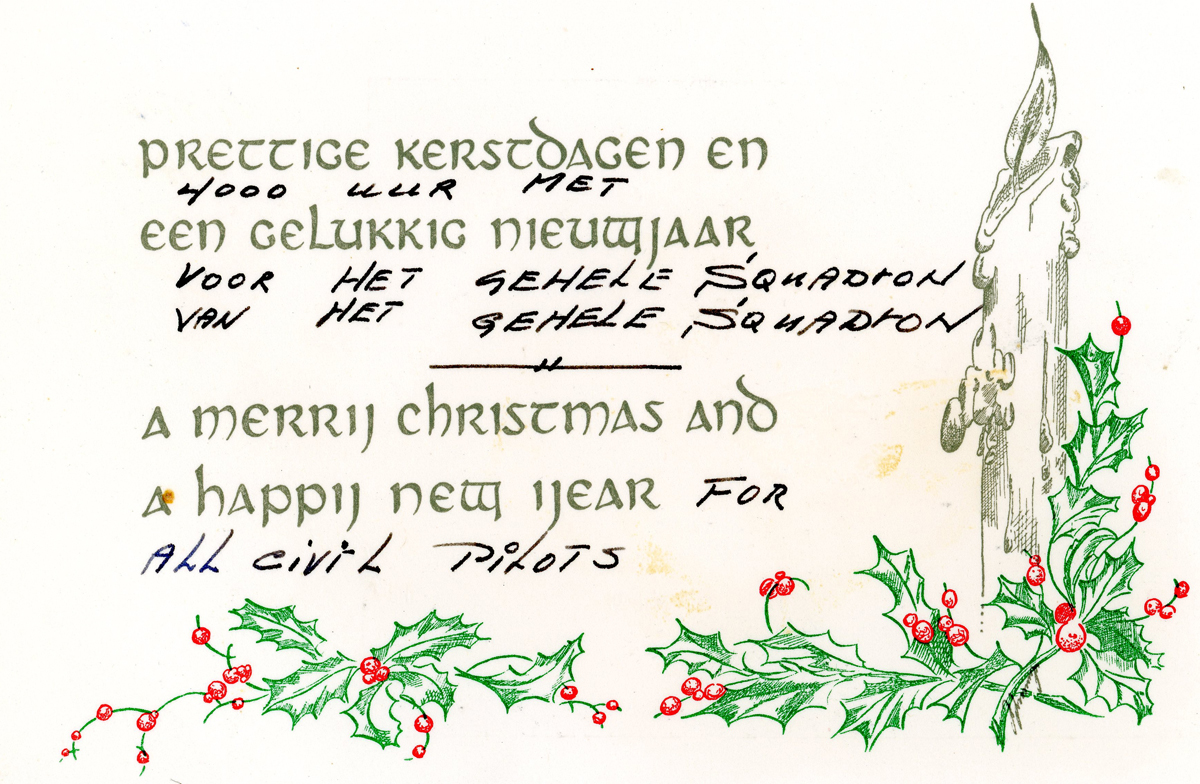 PRETTIGE KERSTDAGEN EN
4000 UUR MET
EEN GELUKKIG NIEUWJAAR
VOOR HET GEHELE SQUADRON
VAN HET GEHELE SQUADRON
"
A MERRY CHRISTMAS AND
A HAPPY NEW YEAR FOR
ALL CIVIL PILOTS